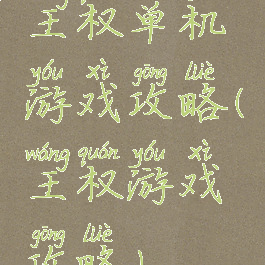 王权单机
yóu xì gōng lüè
游戏攻略(
wáng quán yóu xì
王权游戏
gōng lüè
攻略)